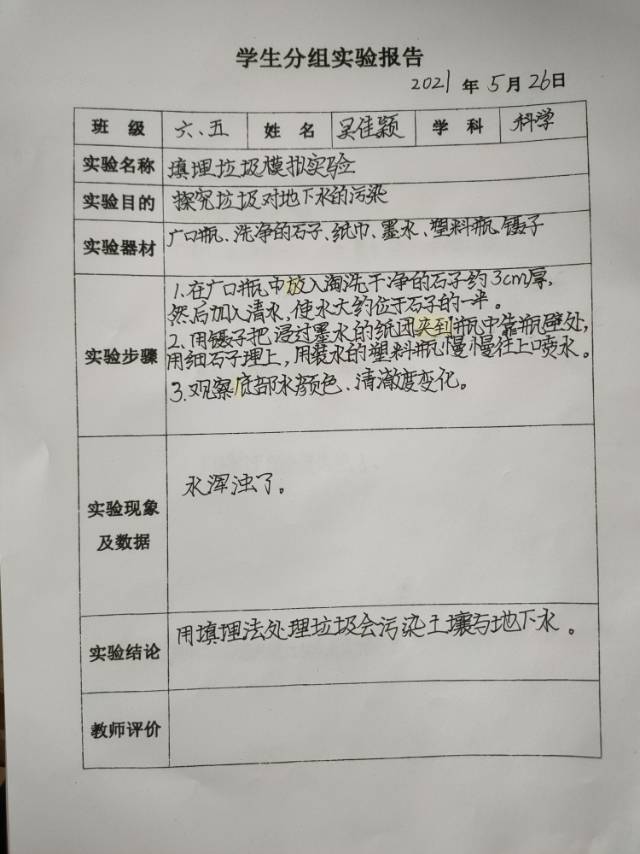 学生分组实验报告
2021 年 5 月 26 日
班 级 六、五 姓 名 吴佳颖 学 科 科学
实验名称 填埋垃圾模拟实验
实验目的 探究垃圾对地下水的污染
实验器材 广口瓶、洗净的石子、纸巾、墨水、塑料瓶、镊子
实验步骤
1.在广口瓶中放入淘洗干净的石子约3cm厚,
然后加入清水、使水大约位于石子的一半。
2.用镊子把浸过墨水的纸团夹到瓶中靠瓶壁处,
用细石子埋上,用装水的塑料瓶慢慢往上喷水。
3.观察底部水颜色、清澈度变化。
实验现象
及数据
水浑浊了。
实验结论 用填埋法处理垃圾会污染土壤与地下水。
教师评价